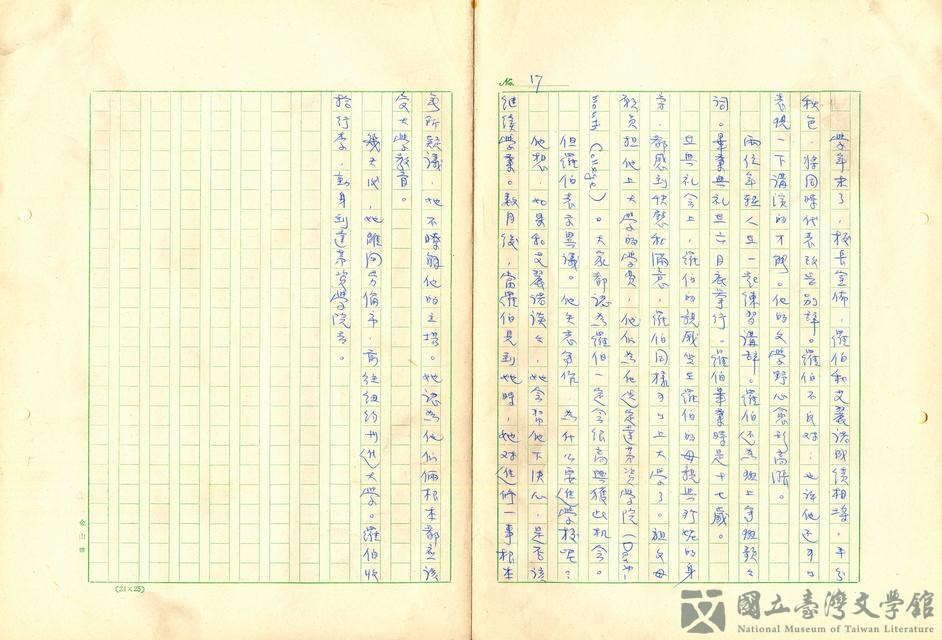 No. 17
學年末了，校長宣佈，羅伯和艾麗諾成績相埒，平分
秋色，將同時代表致告別辭。羅伯不反對：也許他還可以
表現一下講演的才能。他的文學野心愈形高漲。
兩位年輕人在一起練習講辭。羅伯還為班上寫班歌之
詞。畢業典禮在六月底舉行。羅伯畢業時是十七歲。
在典禮會上，羅伯的親戚坐在羅伯的母親與珍妮的身
旁，都感到快慰和滿意，羅伯同樣可以上大學了。祖父母
願負担他上大學的學費，他們為他選定達茅資學院（Dart-
mouth College）。大家都認為羅伯一定會很高興獲此机會。
但羅伯表示異議。他矢志寫作，為什么要進學校呢？
他想，如果和艾麗諾談談，她會幫他下決心，是否該
繼續學業。数月後，當羅伯見到她時，她對進修一事根本
無所疑議，她不瞭解他的立場。她認為他们倆根本都應該
受大學教育。
幾天後，她離開勞倫市，前往紐約州進大學。羅伯收
拾行李，動身到達茅資學院去。
(21×25)
金山牌
國立臺灣文學館
National Museum of Taiwan Literature